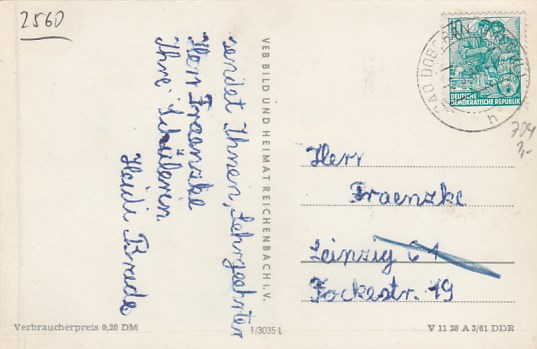 2560
sendet Ihnen, sehr geehrter
Herr Fraenzke
Ihre Schülerin
Heidi Brede
VEB BILD UND HEIMAT REICHENBACH I. V.
10
DEUTSCHE
DEMOKRATISCHE REPUBLIK
BAD DOBERAN
h
704
2,-
Herr
Fraenzke
Leipzig C 1
Fockestr. 19
Verbraucherpreis 0,20 DM
1/3035 L
V 11 28 A 3/61 DDR